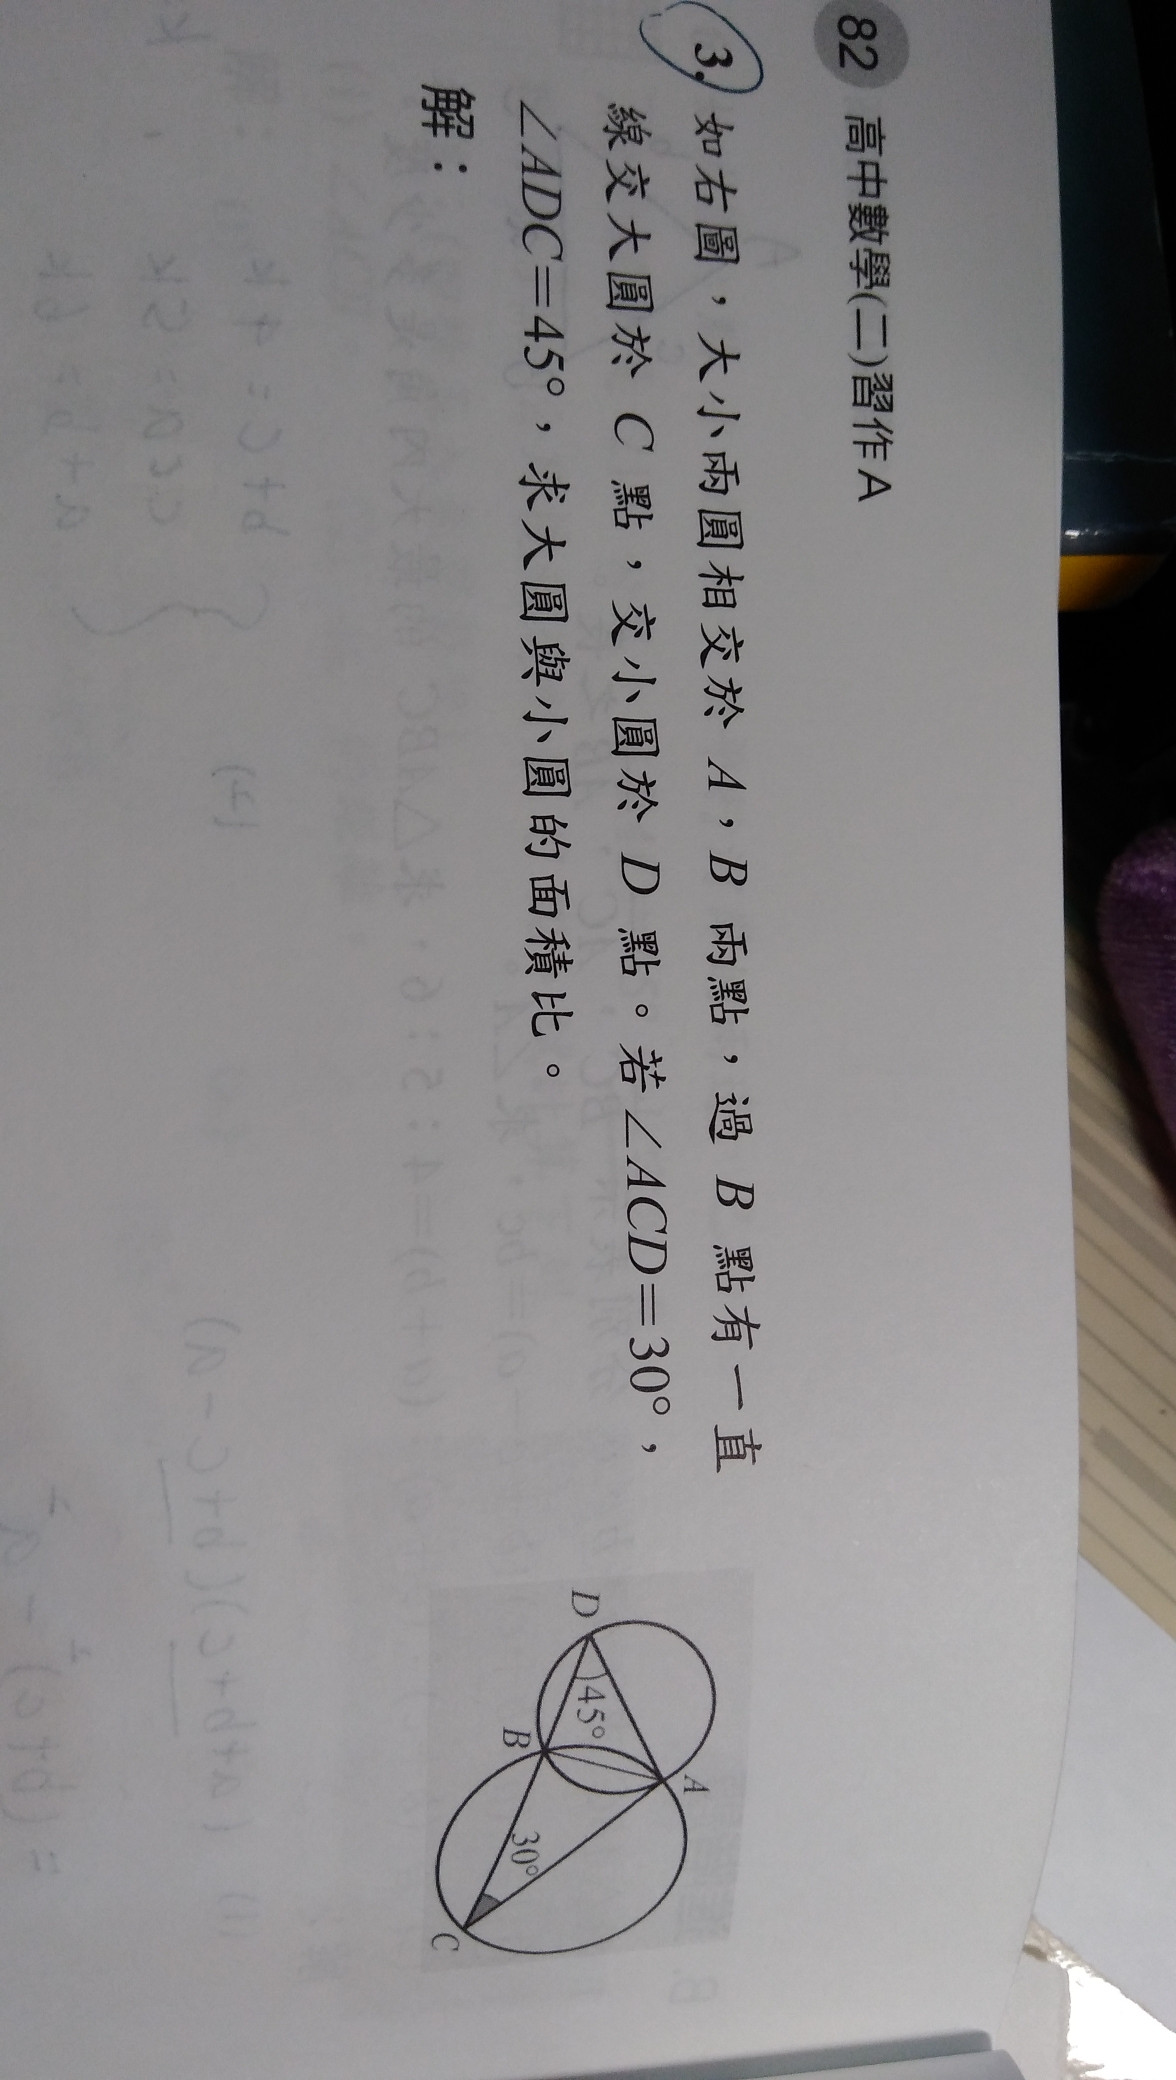 82 高中數學(二)習作A
3. 如右圖，大小兩圓相交於 A，B 兩點，過 B 點有一直
線交大圓於 C 點，交小圓於 D 點。若∠ACD=30°，
∠ADC=45°，求大圓與小圓的面積比。
解：
A
D
45°
B
30°
C